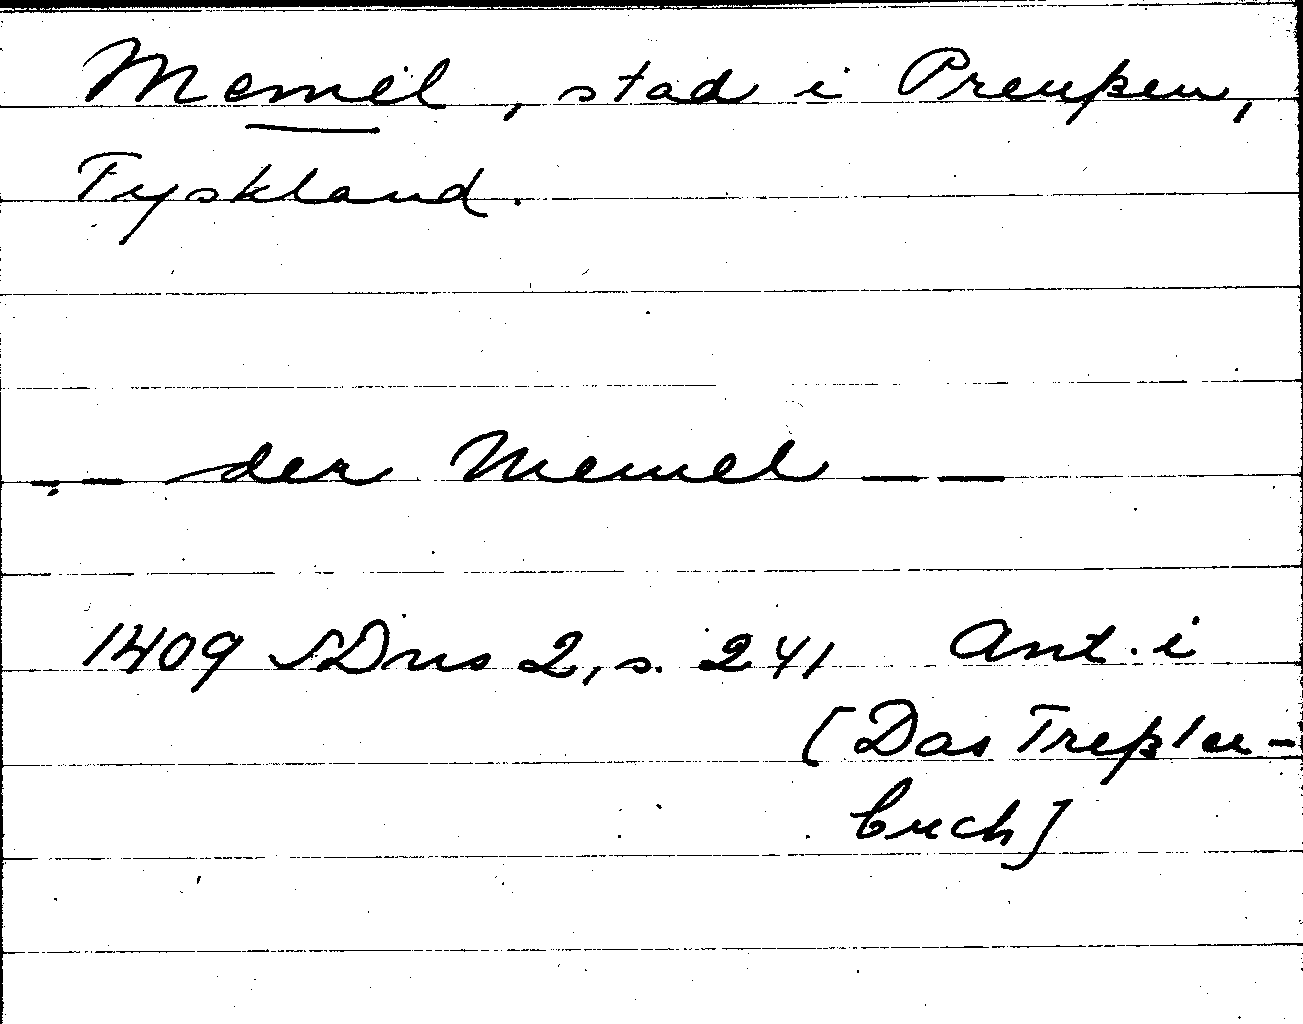 Memel, stad i Preußen,
Tyskland.
-- der Memel --
1409 SDns 2, s. 241 Ant. i
[Das Treßler-
buch]